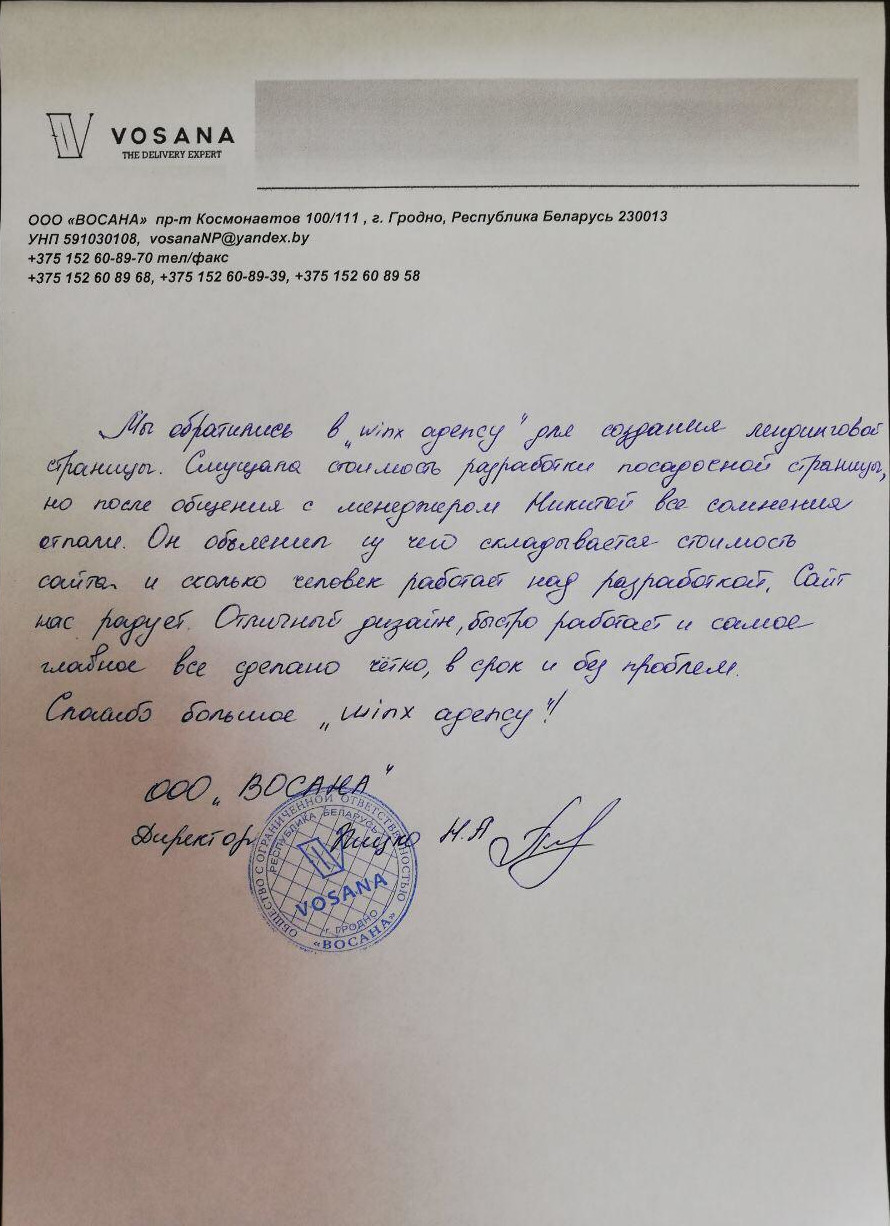 VOSANA
THE DELIVERY EXPERT
ООО «ВОСАНА» пр-т Космонавтов 100/111 , г. Гродно, Республика Беларусь 230013
УНП 591030108, vosanaNP@yandex.by
+375 152 60-89-70 тел/факс
+375 152 60 89 68, +375 152 60-89-39, +375 152 60 89 58
Мы обратились в „winx agency" для создания лендинговой
страницы. Смущала стоимость разработки посадочной страницы,
но после общения с менеджером Никитой все сомнения
отпали. Он объяснил из чего складывается стоимость
сайта и сколько человек работает над разработкой. Сайт
нас радует. Отличный дизайн, быстро работает и самое
главное все сделано чётко, в срок и без проблем.
Спасибо большое „winx agency"!
ООО „ВОСАНА"
Директор Н.А
ОБЩЕСТВО С ОГРАНИЧЕННОЙ ОТВЕТСТВЕННОСТЬЮ
РЕСПУБЛИКА БЕЛАРУСЬ
VOSANA
г. ГРОДНО
«ВОСАНА»